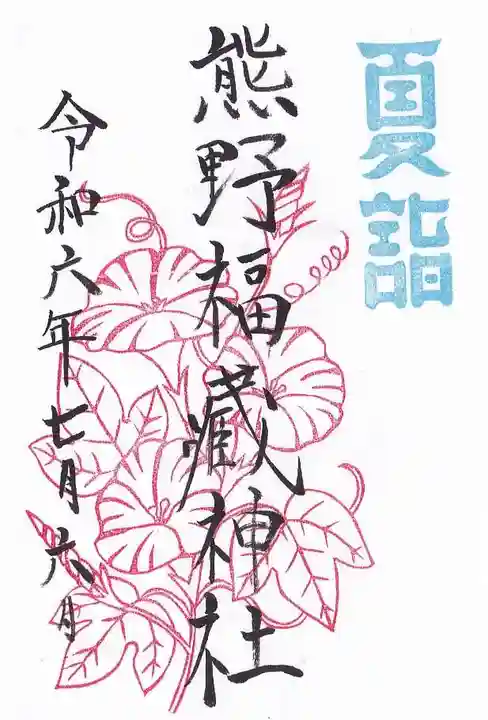 夏詣
熊野福蔵神社
令和六年七月六日